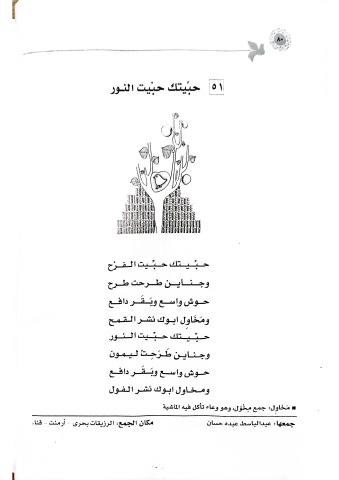 ٨٠
٥١ حبّيتك حبّيت النور
حبّيتك حبّيت الفرح
وجناين طرحت طرح
حوش واسع وبَقَر دافع
ومَخَاوِل ابوك نشر القمح
حبّيتك حبّيت النور
وجناين طَرَحِتْ ليمون
حوش واسع وبَقَر دافع
ومخاول ابوك نشر الفول
■ مَخَاوِل: جمع مِخْوَل، وهو وعاء تأكل فيه الماشية
جمعها: عبدالباسط عبده حسان مكان الجمع: الرزيقات بحرى - أرمنت - قنا.